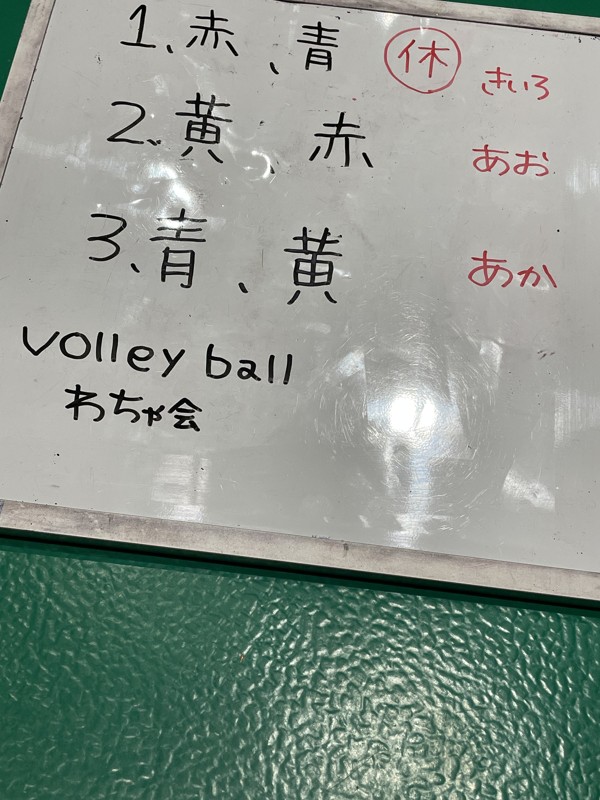 1、赤、青 休 きいろ
2、黄、赤、 あお
3、青、黄 あか
volley ball
わちゃ会